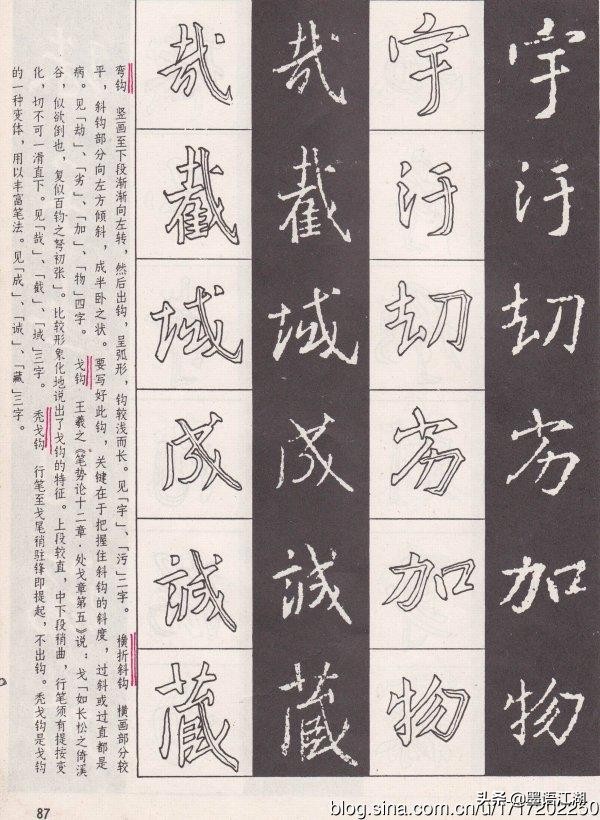 宇汙劫劣加物
宇汙劫劣加物
哉截域成誠藏
哉截域成誠藏
弯钩 竖画至下段渐渐向左转，然后出钩，呈弧形，钩较浅而长。见「字」、「污」二字。 横折斜钩 横画部分较
平，斜钩部分向左方倾斜，成半卧之状。要写好此钩，关键在于把握住斜钩的斜度，过斜或过直都是
病。见「劫」、「劣」、「加」、「物」四字。 戈钩 王羲之《笔势论十二章·处戈章第五》说：戈「如长松之倚溪
谷，似欲倒也，复似百钧之弩初张」。比较形象化地说出了戈钩的特征。上段较直，中下段稍曲，行笔须有提按变
化，切不可一滑直下。见「哉」、「截」、「域」三字。 秃戈钩 行笔至戈尾稍驻锋即提起，不出钩。秃戈钩是戈钩
的一种变体，用以丰富笔法。见「成」、「诚」、「藏」三字。
87
头条@墨语江湖
blog.sina.com.cn/u/1717202250